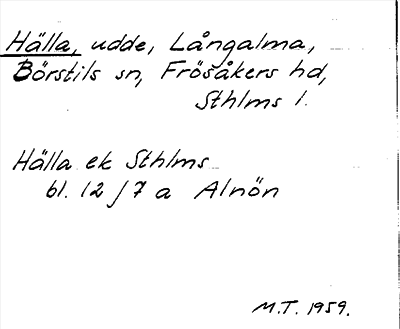 Hälla, udde, Långalma,
Börstils sn, Frösåkers hd,
Sthlms l.
Hälla ek Sthlms
bl. 12 / 7 a Alnön
M.T. 1959.